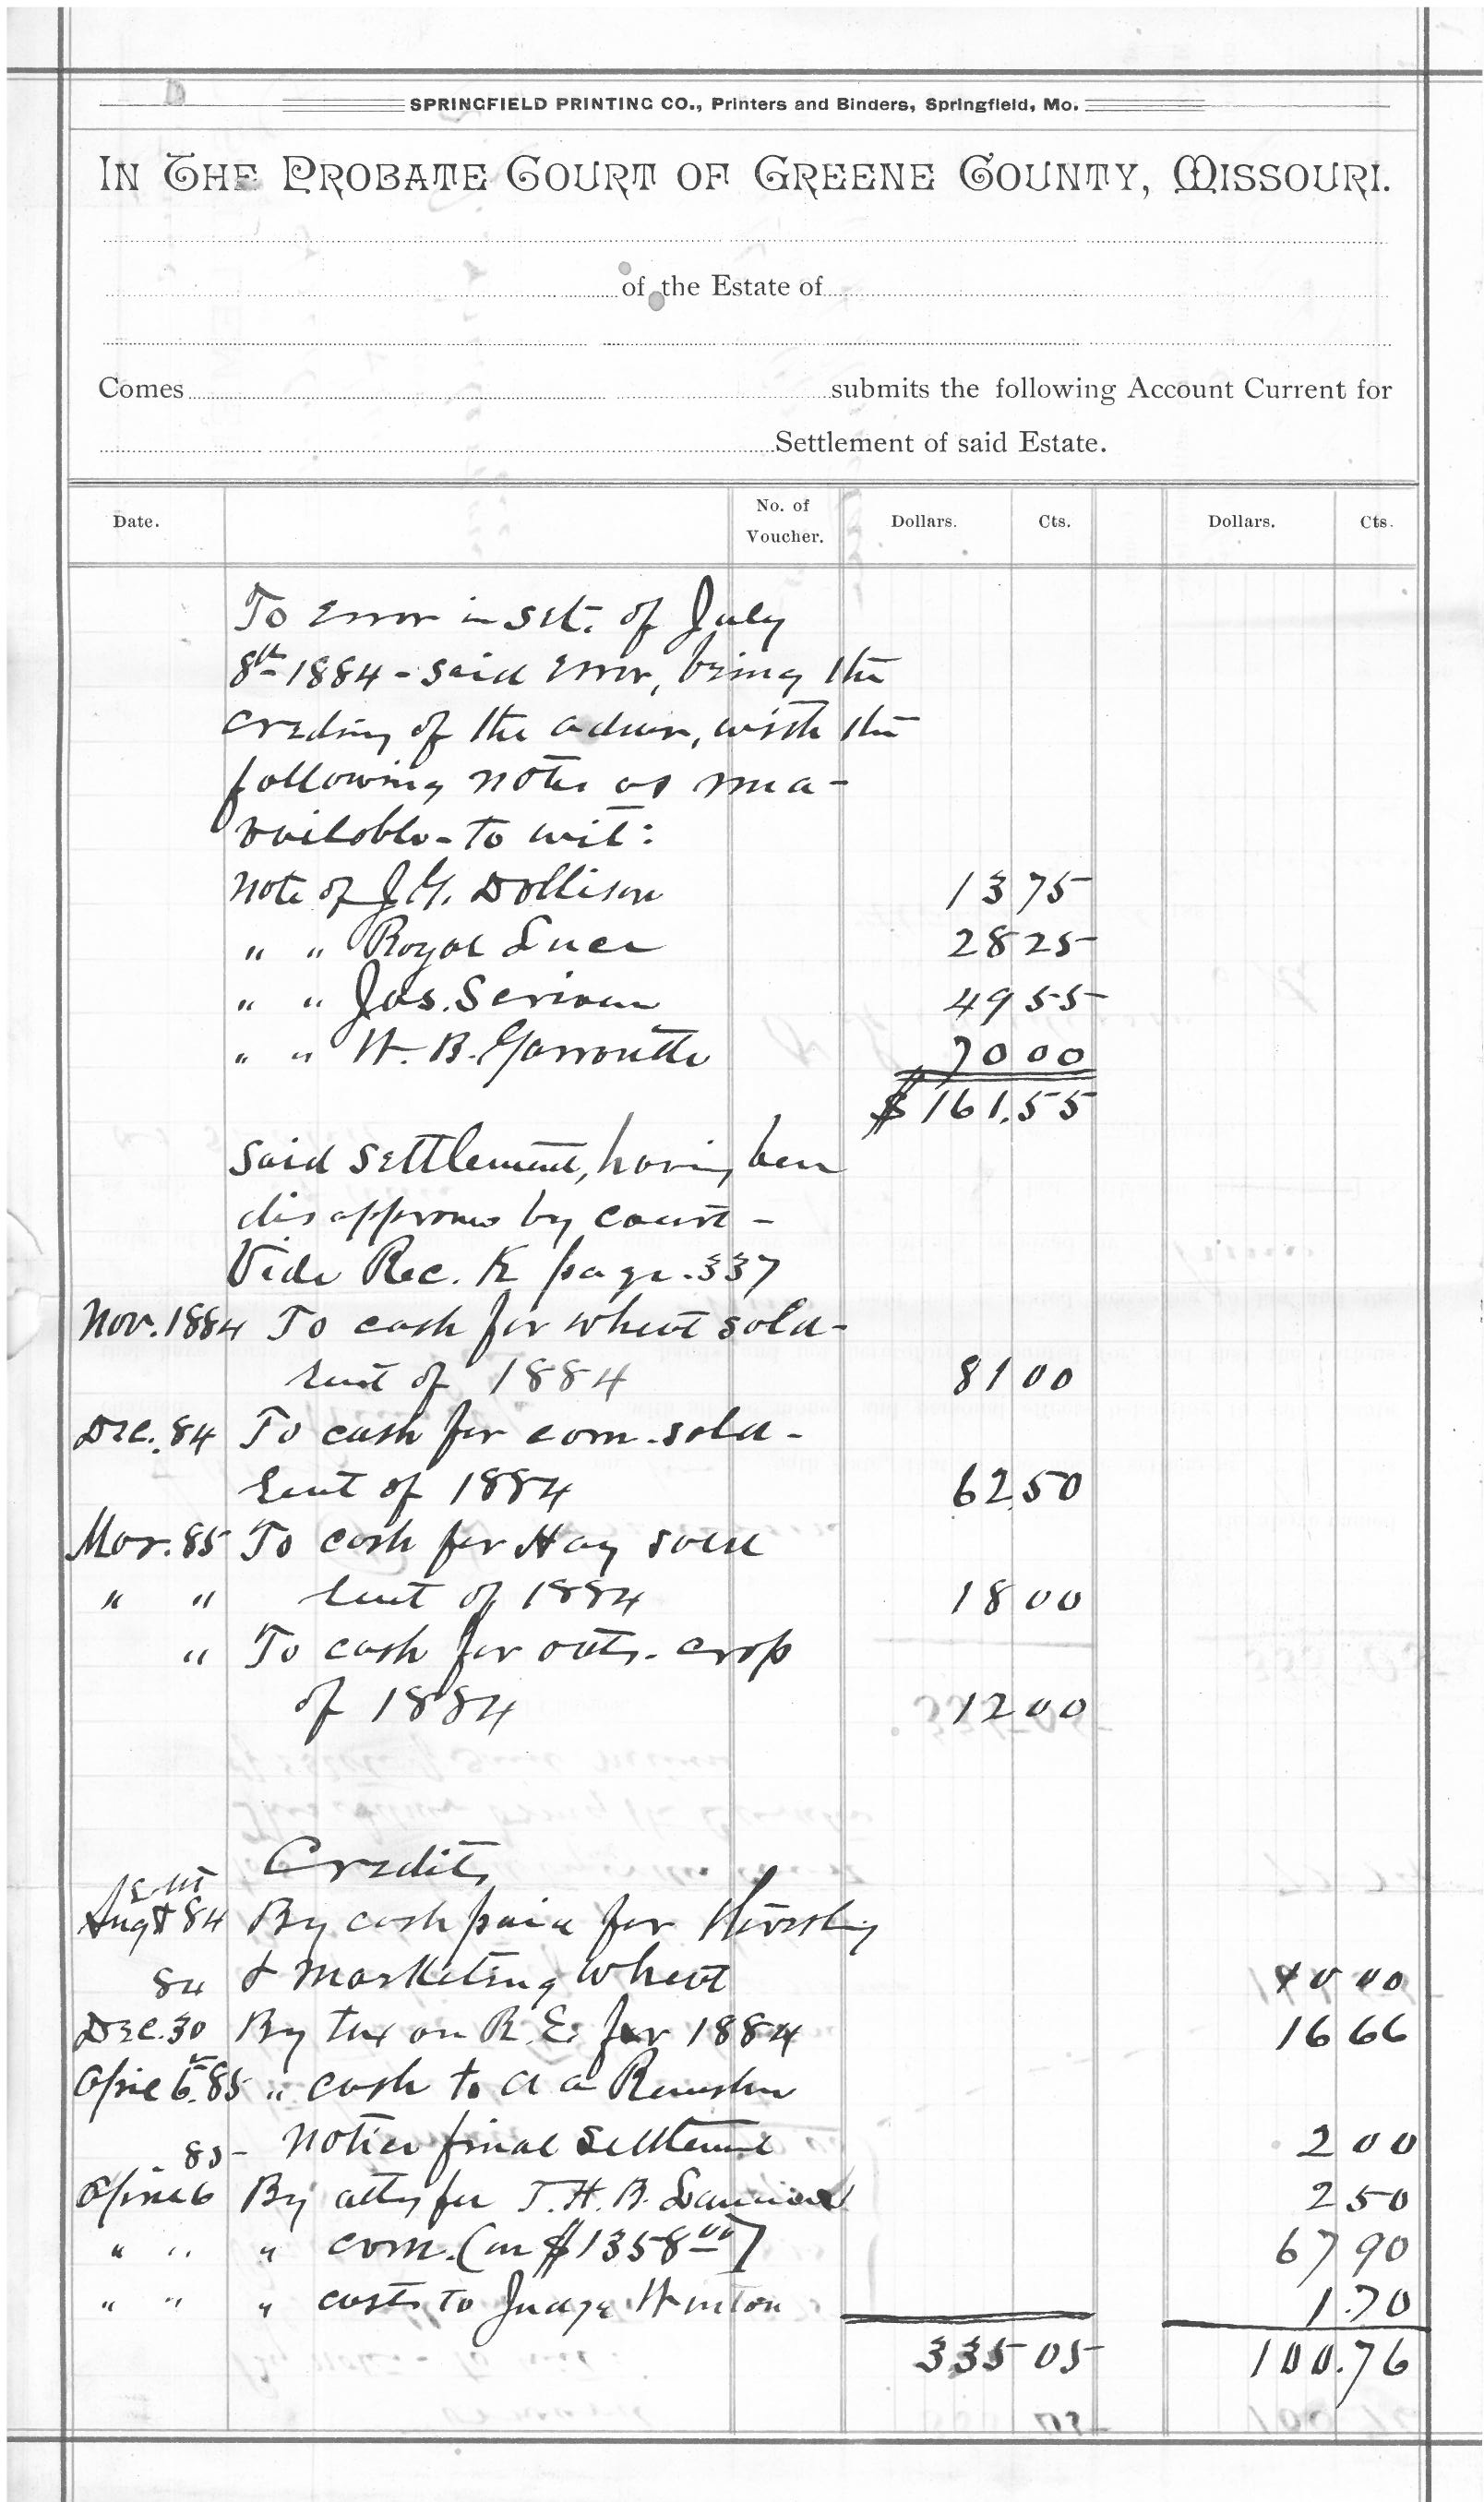 SPRINGFIELD PRINTING CO., Printers and Binders, Springfield, Mo.
IN THE PROBATE COURT OF GREENE COUNTY, MISSOURI.
of the Estate of
Comes submits the following Account Current for
Settlement of said Estate.
Date. No. of Voucher. Dollars. Cts. Dollars. Cts.
To Error in Set. of July
8th 1884 - said Error, being the
of the admr, with the
following notes as una-
vailable - to wit:
Note of J.G. Dollison 13 75
" " Royal 28 25
" " Jas. Scriven 49 55
" " W. B. Garroutte 70 00
$161.55
Said Settlement, having been
disapproved by court -
Vide Rec. K page. 337
Nov. 1884 To cash for wheat sold -
rent of 1884 81 00
Dec. 84 To cash for corn. sold -
Rent of 1884 62 50
Mar. 85 To cash for Hay sold
" " rent of 1884 18 00
" To cash for oats. crop
of 1884 12 00
Credits
Augt 84 By cash paid for
84 & marketing wheat 10 00
Dec. 30 By tax on R. E. for 1884 16 66
April 6. 85 " cash to a a
85 - notice final Settlement 2 00
April 6 By atty fee T. H. B. 2 50
" " " com. (on $1358 00) 67 90
" " " costs to Judge Winton 1.70
335 05 100.76